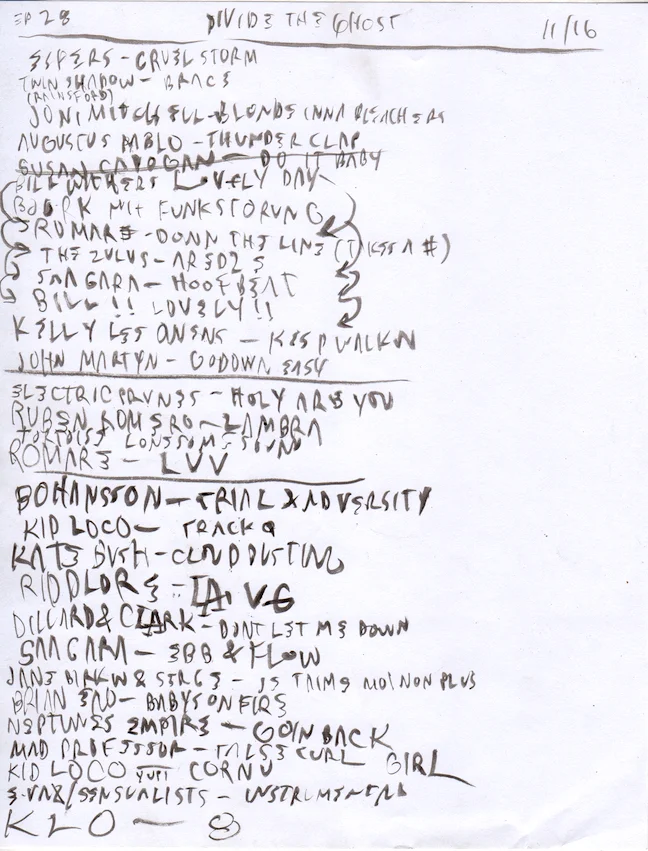 EP 28 DIVIDE THE GHOST 11/16
ESPERS - CRUEL STORM
TWIN SHADOW - BRACE
(RAINSFORD)
JONI MITCHELL - BLONDE INNA BLEACHERS
AUGUSTUS PABLO - THUNDER CLAP
SUSAN CADOGAN - DO IT BABY
BILL WITHERS LOVELY DAY
BJORK MIT FUNKSTORUNG
ROMARE - DOWN THE LINE (IT TAKES A #)
THE ZULUS -
SAAGARA - HOOFBEAT
BILL!! LOVELY!!
KELLY LEE OWENS - KEEP WALKIN
JOHN MARTYN - GO DOWN EASY
ELECTRIC PRUNES - HOLY ARE YOU
RUBEN ROMERO - LAMBRA
TORTOISE LONESOME SOUND
ROMARE - LUV
BOHANSSON - TRIAL & ADVERSITY
KID LOCO - TRACK
KATE BUSH - CLOUDBUSTING
RIDDLORE - LA VG
DILLARD & CLARK - DONT LET ME DOWN
SAAGARA - EBB & FLOW
JANE BIRKIN & SERGE - JE TAIME MOI NON PLUS
BRIAN ENO - BABYS ON FIRE
NEPTUNES EMPIRE - GOIN BACK
MAD PROFESSOR - FALSE CURL GIRL
KID LOCO - CORNU
/SENSUALISTS - INSTRUMENTAL
KLO - 8